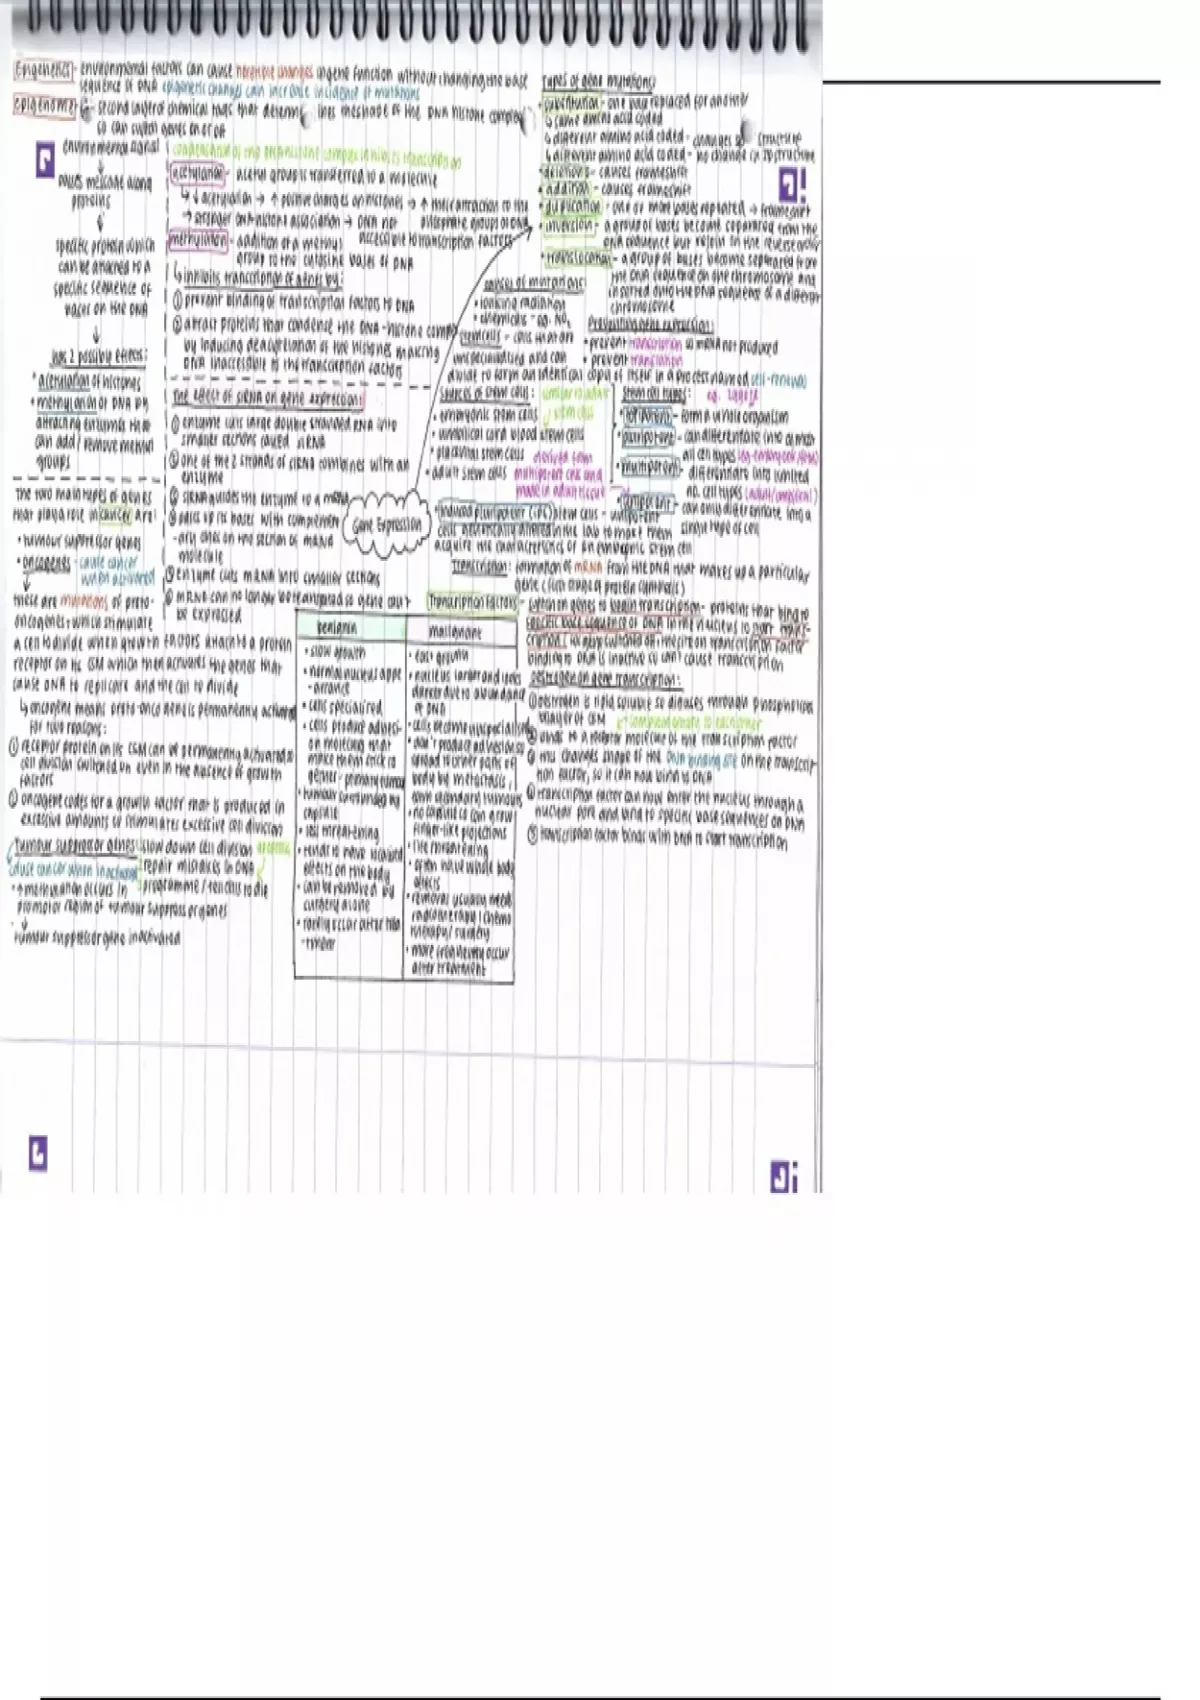 Epigenetics - environmental factors can cause heritable changes in gene function without changing the base
sequence of DNA epigenetic changes can increase incidence of mutations
epigenome - second layer of chemical tags that determines the shape of the DNA histone complex
so can switch genes on or off
environmental signal
↓
passes message along
proteins
↓
specific protein which
can be attached to a
specific sequence of
bases on the DNA
↓
has 2 possible effects:
• acetylation of histones
• methylation of DNA by
attracting enzymes that
can add / remove methyl
groups
The two main types of genes
that play a role in cancer are:
• tumour suppressor genes
• oncogenes - cause cancer
when activated
↓
these are mutations of proto-
oncogenes which stimulate
a cell to divide when growth factors attach to a protein
receptor on its CSM which then activates the genes that
cause DNA to replicate and the cell to divide
↳ oncogene means proto-oncogene is permanently activated
for two reasons:
① receptor protein on its CSM can be permanently activated so
cell division switched on even in the absence of growth
factors
② oncogene codes for a growth factor that is produced in
excessive amounts so stimulates excessive cell division
tumour suppressor genes: slow down cell division
cause cancer when inactivated repair mistakes in DNA
• ↑ methylation occurs in programme / tell cells to die
promoter region of tumour suppressor genes
↓
tumour suppressor gene inactivated
condensation of the DNA histone complex inhibits transcription
acetylation - acetyl group is transferred to a molecule
↳ ↓ acetylation → ↑ positive charges on histones → ↑ their attraction to the
phosphate groups of DNA
→ stronger DNA-histone association → DNA not
accessible to transcription factors
methylation - addition of a methyl
group to the cytosine bases of DNA
↳ inhibits transcription of genes by:
① prevent binding of transcription factors to DNA
② attract proteins that condense the DNA-histone complex
by inducing deacetylation of the histones making
DNA inaccessible to the transcription factors
The effect of siRNA on gene expression:
① enzyme cuts large double stranded RNA into
smaller sections called siRNA
② one of the 2 strands of siRNA combines with an
enzyme
③ siRNA guides the enzyme to a mRNA
④ pairs up its bases with complement
-ary ones on the section of mRNA
molecule
⑤ enzyme cuts mRNA into smaller sections
⑥ mRNA can no longer be translated so gene can't
be expressed
Gene Expression
benign
• slow growth
• normal nucleus appe
-arance
• cells specialised
• cells produce adhesi-
on molecules that
make them stick to
gether - primary tumour
• tumour surrounded by
capsule
• less threatening
• tends to have localised
effects on the body
• can be removed by
surgery alone
• rarely occur after trea
-tment
malignant
• fast growth
• nucleus larger and looks
darker due to abundance
of DNA
• cells become unspecialised
• don't produce adhesion so
spread to other parts of
body by metastasis,
form secondary tumours
• no capsule so can grow
finger-like projections
• life threatening
• often have whole body
effects
• removal usually needs
radiotherapy / chemo
therapy / surgery
• more frequently occur
after treatment
Types of gene mutations:
• substitution - one base replaced for another
↳ same amino acid coded
↳ different amino acid coded - changes 3D structure
↳ different amino acid coded - no change in 3D structure
• deletions - causes frameshift
• addition - causes frameshift
• duplication - one or more bases repeated → frameshift
• inversion - a group of bases become separated from the
DNA sequence but rejoin in the reverse order
• translocation - a group of bases become separated from
the DNA sequence on one chromosome and
inserted into the DNA sequence of a different
chromosome
causes of mutations:
• ionising radiation
• chemicals - eg. NO₂
Preventing gene expression:
• prevent transcription so mRNA not produced
• prevent translation
stem cells - cells that are
unspecialised and can
divide to form an identical copy of itself in a process named self-renewal
sources of stem cells:
• embryonic stem cells
• umbilical cord blood stem cells
• placental stem cells
• adult stem cells
derived from
multipotent cells and
made in adult tissue
stem cell types:
• totipotent - form a whole organism
• pluripotent - can differentiate into almost
all cell types (eg. embryonic stem)
• multipotent - differentiate into limited
no. cell types (adult/umbilical)
• unipotent - can only differentiate into a
single type of cell
• induced pluripotent (iPS) stem cells - unipotent
cells genetically altered in the lab to make them
acquire the characteristics of an embryonic stem cell
Transcription: formation of mRNA from the DNA that makes up a particular
gene (first stage of protein synthesis)
Transcription factors - switch on genes to begin transcription - proteins that bind to
specific base sequence of DNA in the nucleus to start trans-
cription. (
binding to DNA is inactive so can't cause transcription
oestrogen on gene transcription:
① oestrogen is lipid soluble so diffuses through phospholipid
bilayer of CSM
② binds to a receptor molecule of the transcription factor
③ this changes shape of the DNA binding site on the transcrip-
tion factor, so it can now bind to DNA
④ transcription factor can now enter the nucleus through a
nuclear pore and bind to specific base sequences on DNA
⑤ transcription factor binds with DNA to start transcription